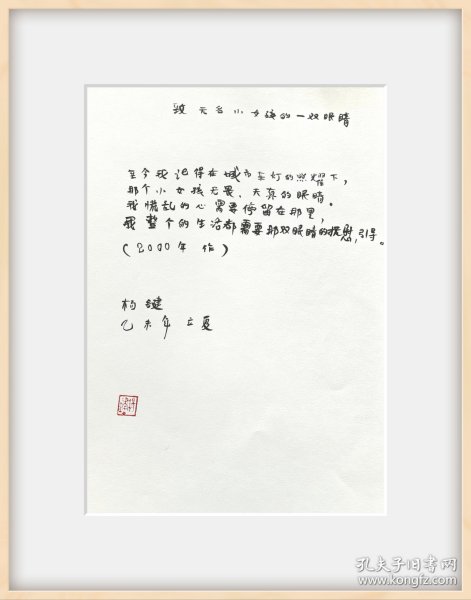 致无名小女孩的一双眼睛
至今我记得在城市车灯的照耀下,
那个小女孩无畏、天真的眼睛。
我慌乱的心需要停留在那里,
我整个的生活都需要那双眼睛的抚慰,引导。
(2000年 作)
杨键
乙未年 立夏
孔夫子旧书网
www.kongfz.com